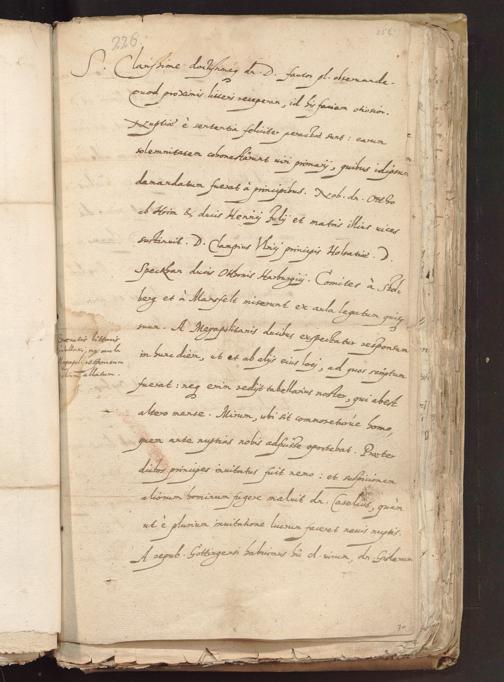 226.
S. Clarissime doctissimeq dn. D. fautor pl. observande.
Quod proximis litteris receperam, id his faciam otiosior.
Nuptiae è sententia feliciter peractae sunt: earum
solemnitatem cohonestarunt viri primarij, quibus id ipsum
demandatum fuerat à principibus. Nob. dn. Otho
ab Hoim ducis Henrici Julij et matris illius vices
sustinuit. D. Clampius Ulrici principis Holsatiae. D.
Speckhan ducis Othonis Harburgij. Comites à Stol-
berg et à Mansfelt miserunt ex aula legatum quisq
suum. A Megapolitanis ducibus exspectatur responsum
in hunc diem, ut et ab alijs eius loci, ad quos scriptum
fuerat: neq enim redijt tabellarius noster, qui abest
altero mense. Mirum, ubi sit commoreturue homo,
quem ante nuptias nobis adfuisse oportebat. Praeter
dictos principes invitatus fuit nemo: et suspicionem
aliorum hominum fugere maluit dn. Caselius, quàm
ut è plurium invitatione lucrum faceret novis nuptis.
A repub. Gottingensi habuimus hic cl. virum, dn.